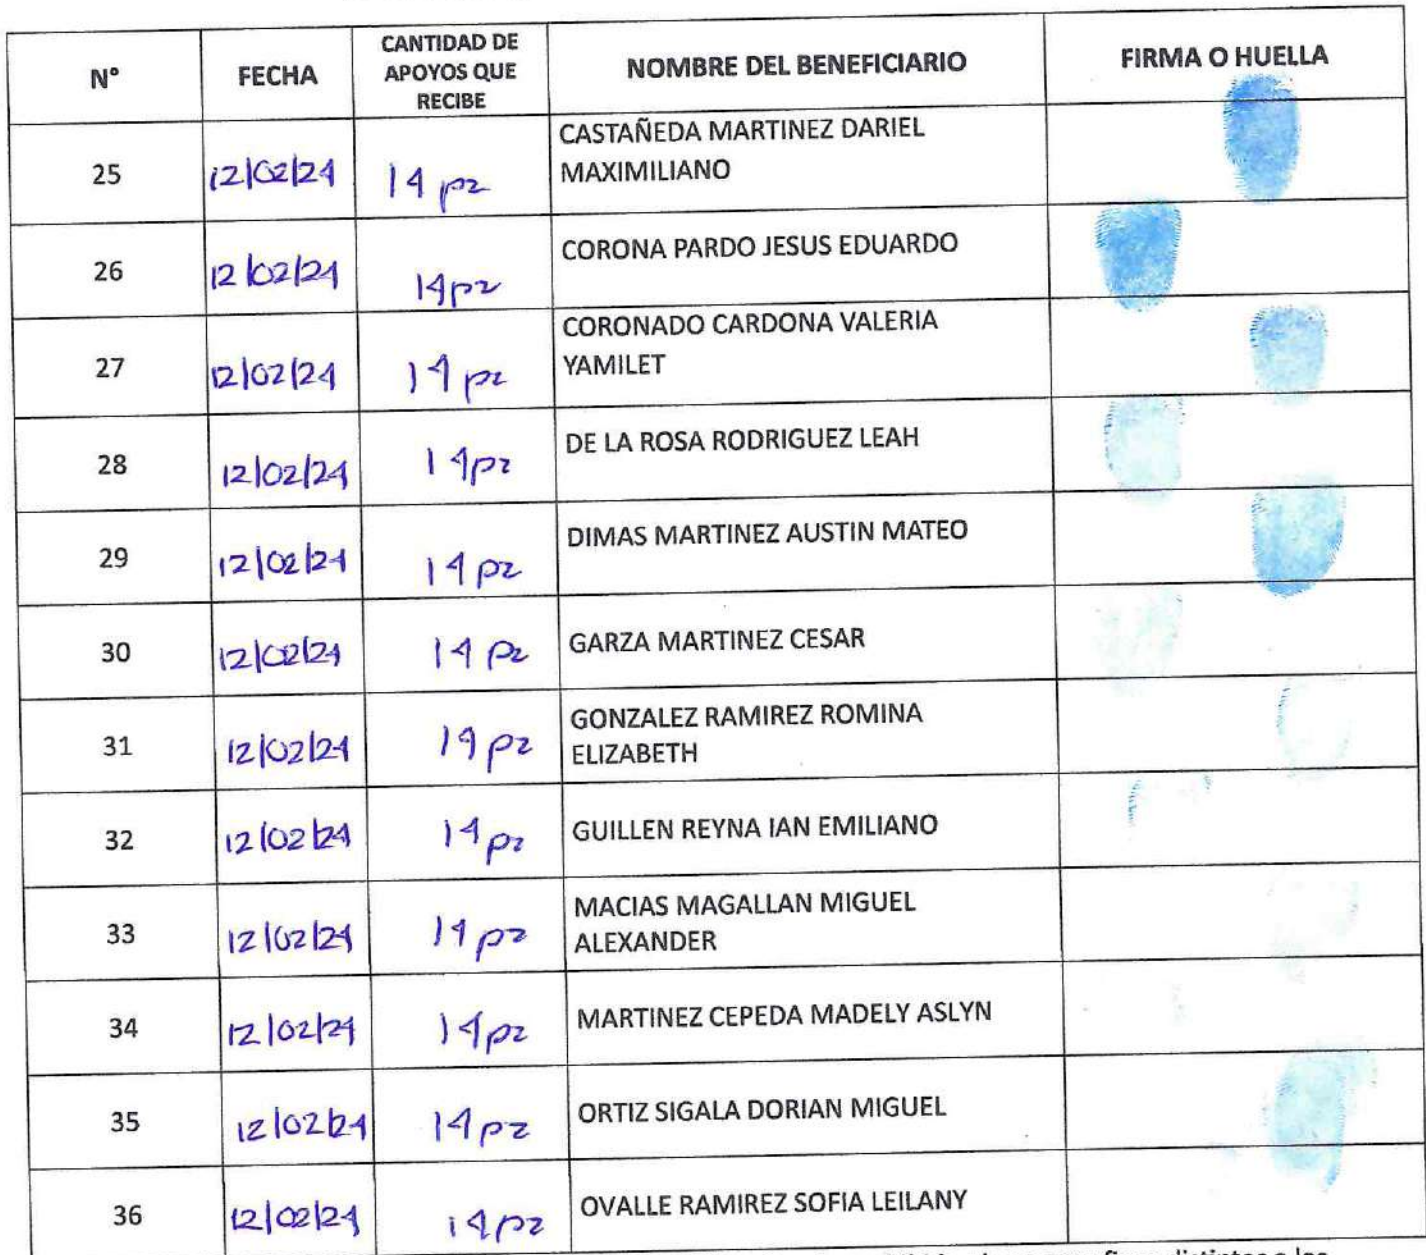 N° FECHA CANTIDAD DE APOYOS QUE RECIBE NOMBRE DEL BENEFICIARIO FIRMA O HUELLA
25 12/02/24 14 pz CASTAÑEDA MARTINEZ DARIEL MAXIMILIANO
26 12/02/24 14pz CORONA PARDO JESUS EDUARDO
27 12/02/24 14 pz CORONADO CARDONA VALERIA YAMILET
28 12/02/24 14pz DE LA ROSA RODRIGUEZ LEAH
29 12/02/24 14 pz DIMAS MARTINEZ AUSTIN MATEO
30 12/02/24 14 Pz GARZA MARTINEZ CESAR
31 12/02/24 14 pz GONZALEZ RAMIREZ ROMINA ELIZABETH
32 12/02/24 14 pz GUILLEN REYNA IAN EMILIANO
33 12/02/24 14 pz MACIAS MAGALLAN MIGUEL ALEXANDER
34 12/02/24 14pz MARTINEZ CEPEDA MADELY ASLYN
35 12/02/24 14pz ORTIZ SIGALA DORIAN MIGUEL
36 12/02/24 14pz OVALLE RAMIREZ SOFIA LEILANY